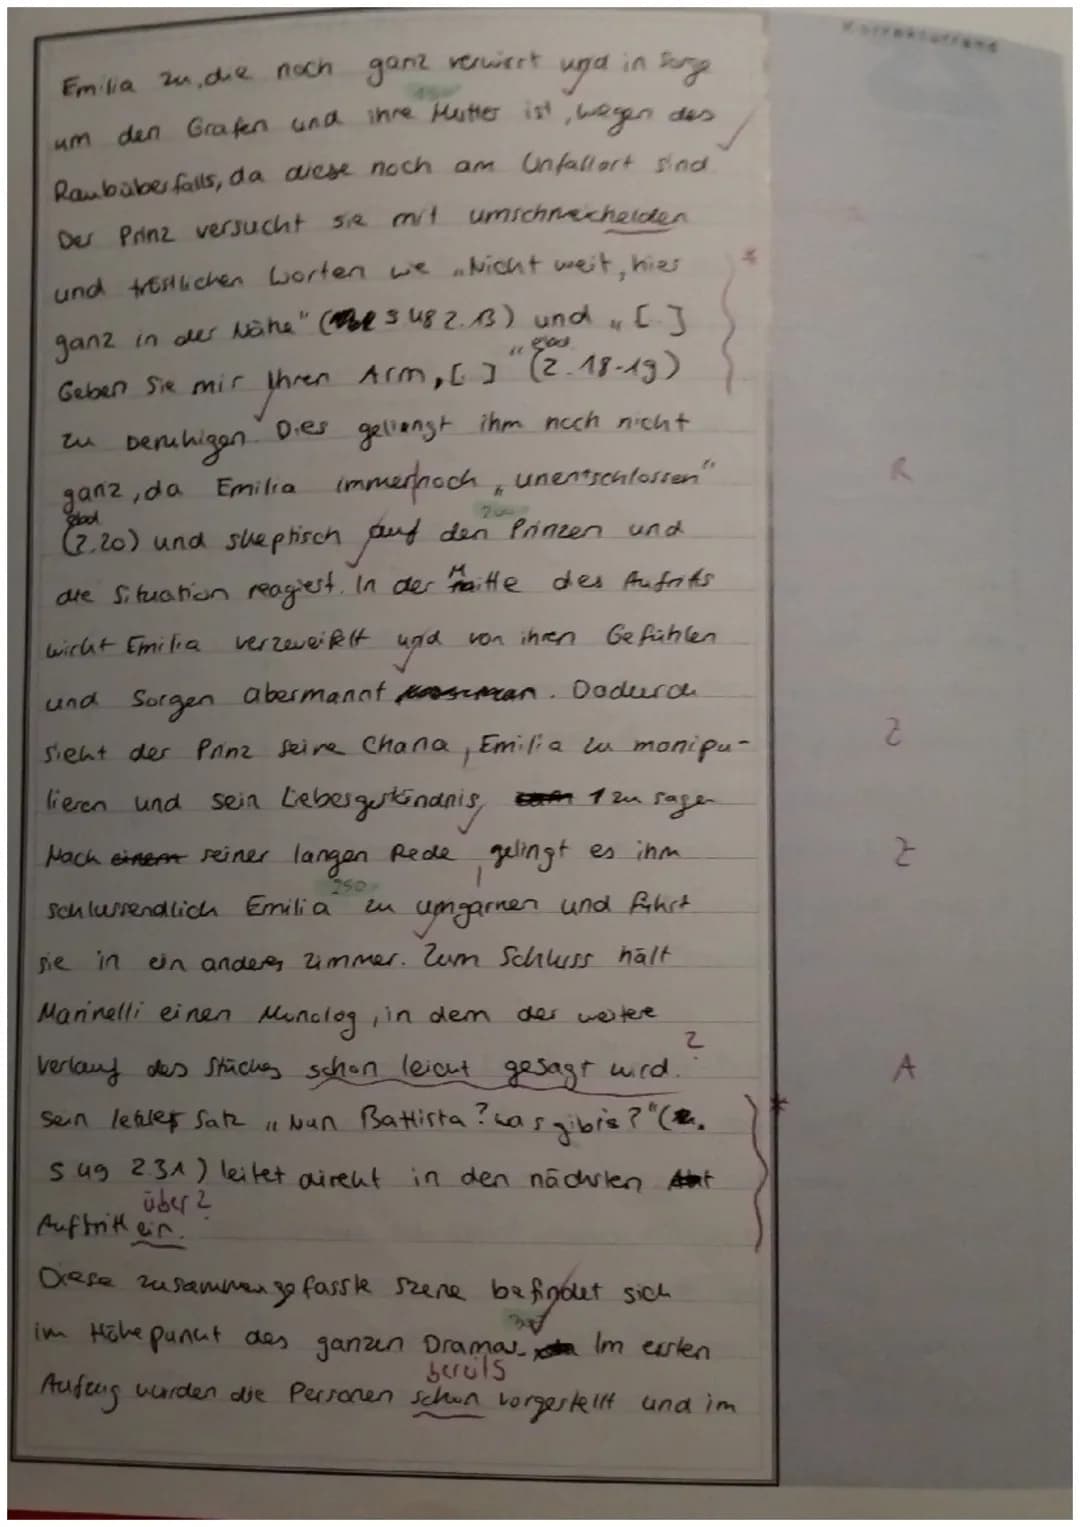 Korrekturrand
Emilia zu, die noch ganz verwirrt und in Sorge
150
um den Grafen und ihre Mutter ist, wegen des
Raubüberfalls, da diese noch am Unfallort sind.
Der Prinz versucht sie mit umschmeichelden
und tröstlichen Worten wie „Nicht weit, hier
ganz in der Nähe" (S 48 Z. 13) und „[..]
Geben Sie mir Ihren Arm, [ ]" (Z. 18-19)
zu beruhigen. Dies geliengt ihm noch nicht
ganz, da Emilia immernoch „unentschlossen" R
200
(Z.20) und skeptisch auf den Prinzen und
die Situation reagiert. In der Mitte des Aufritts
wirkt Emilia verzeweifelt und von ihren Gefühlen
und Sorgen übermannt. Dadurch
sieht der Prinz seine Chana, Emilia zu monipu- Z
lieren und sein Liebesgeständnis, 1 zu sagen
Nach einem seiner langen Rede, gelingt es ihm Z
250
schlussendlich Emilia zu umgarnen und führt
sie in ein anderes Zimmer. Zum Schluss hält
Marinelli einen Monolog, in dem der weitere
Verlauf des Stückes schon leicht gesagt wird. ? A
Sein letzter Satz „Nun Battista? was gibts?" (
S 49 Z.31) leitet direkt in den nächsten
über?
Auftritt ein.
Diese zusammengefasste Szene befindet sich
im Höhepunkt des ganzen Dramas. Im ersten
bereits
Aufzug wurden die Personen schon vorgestellt und im